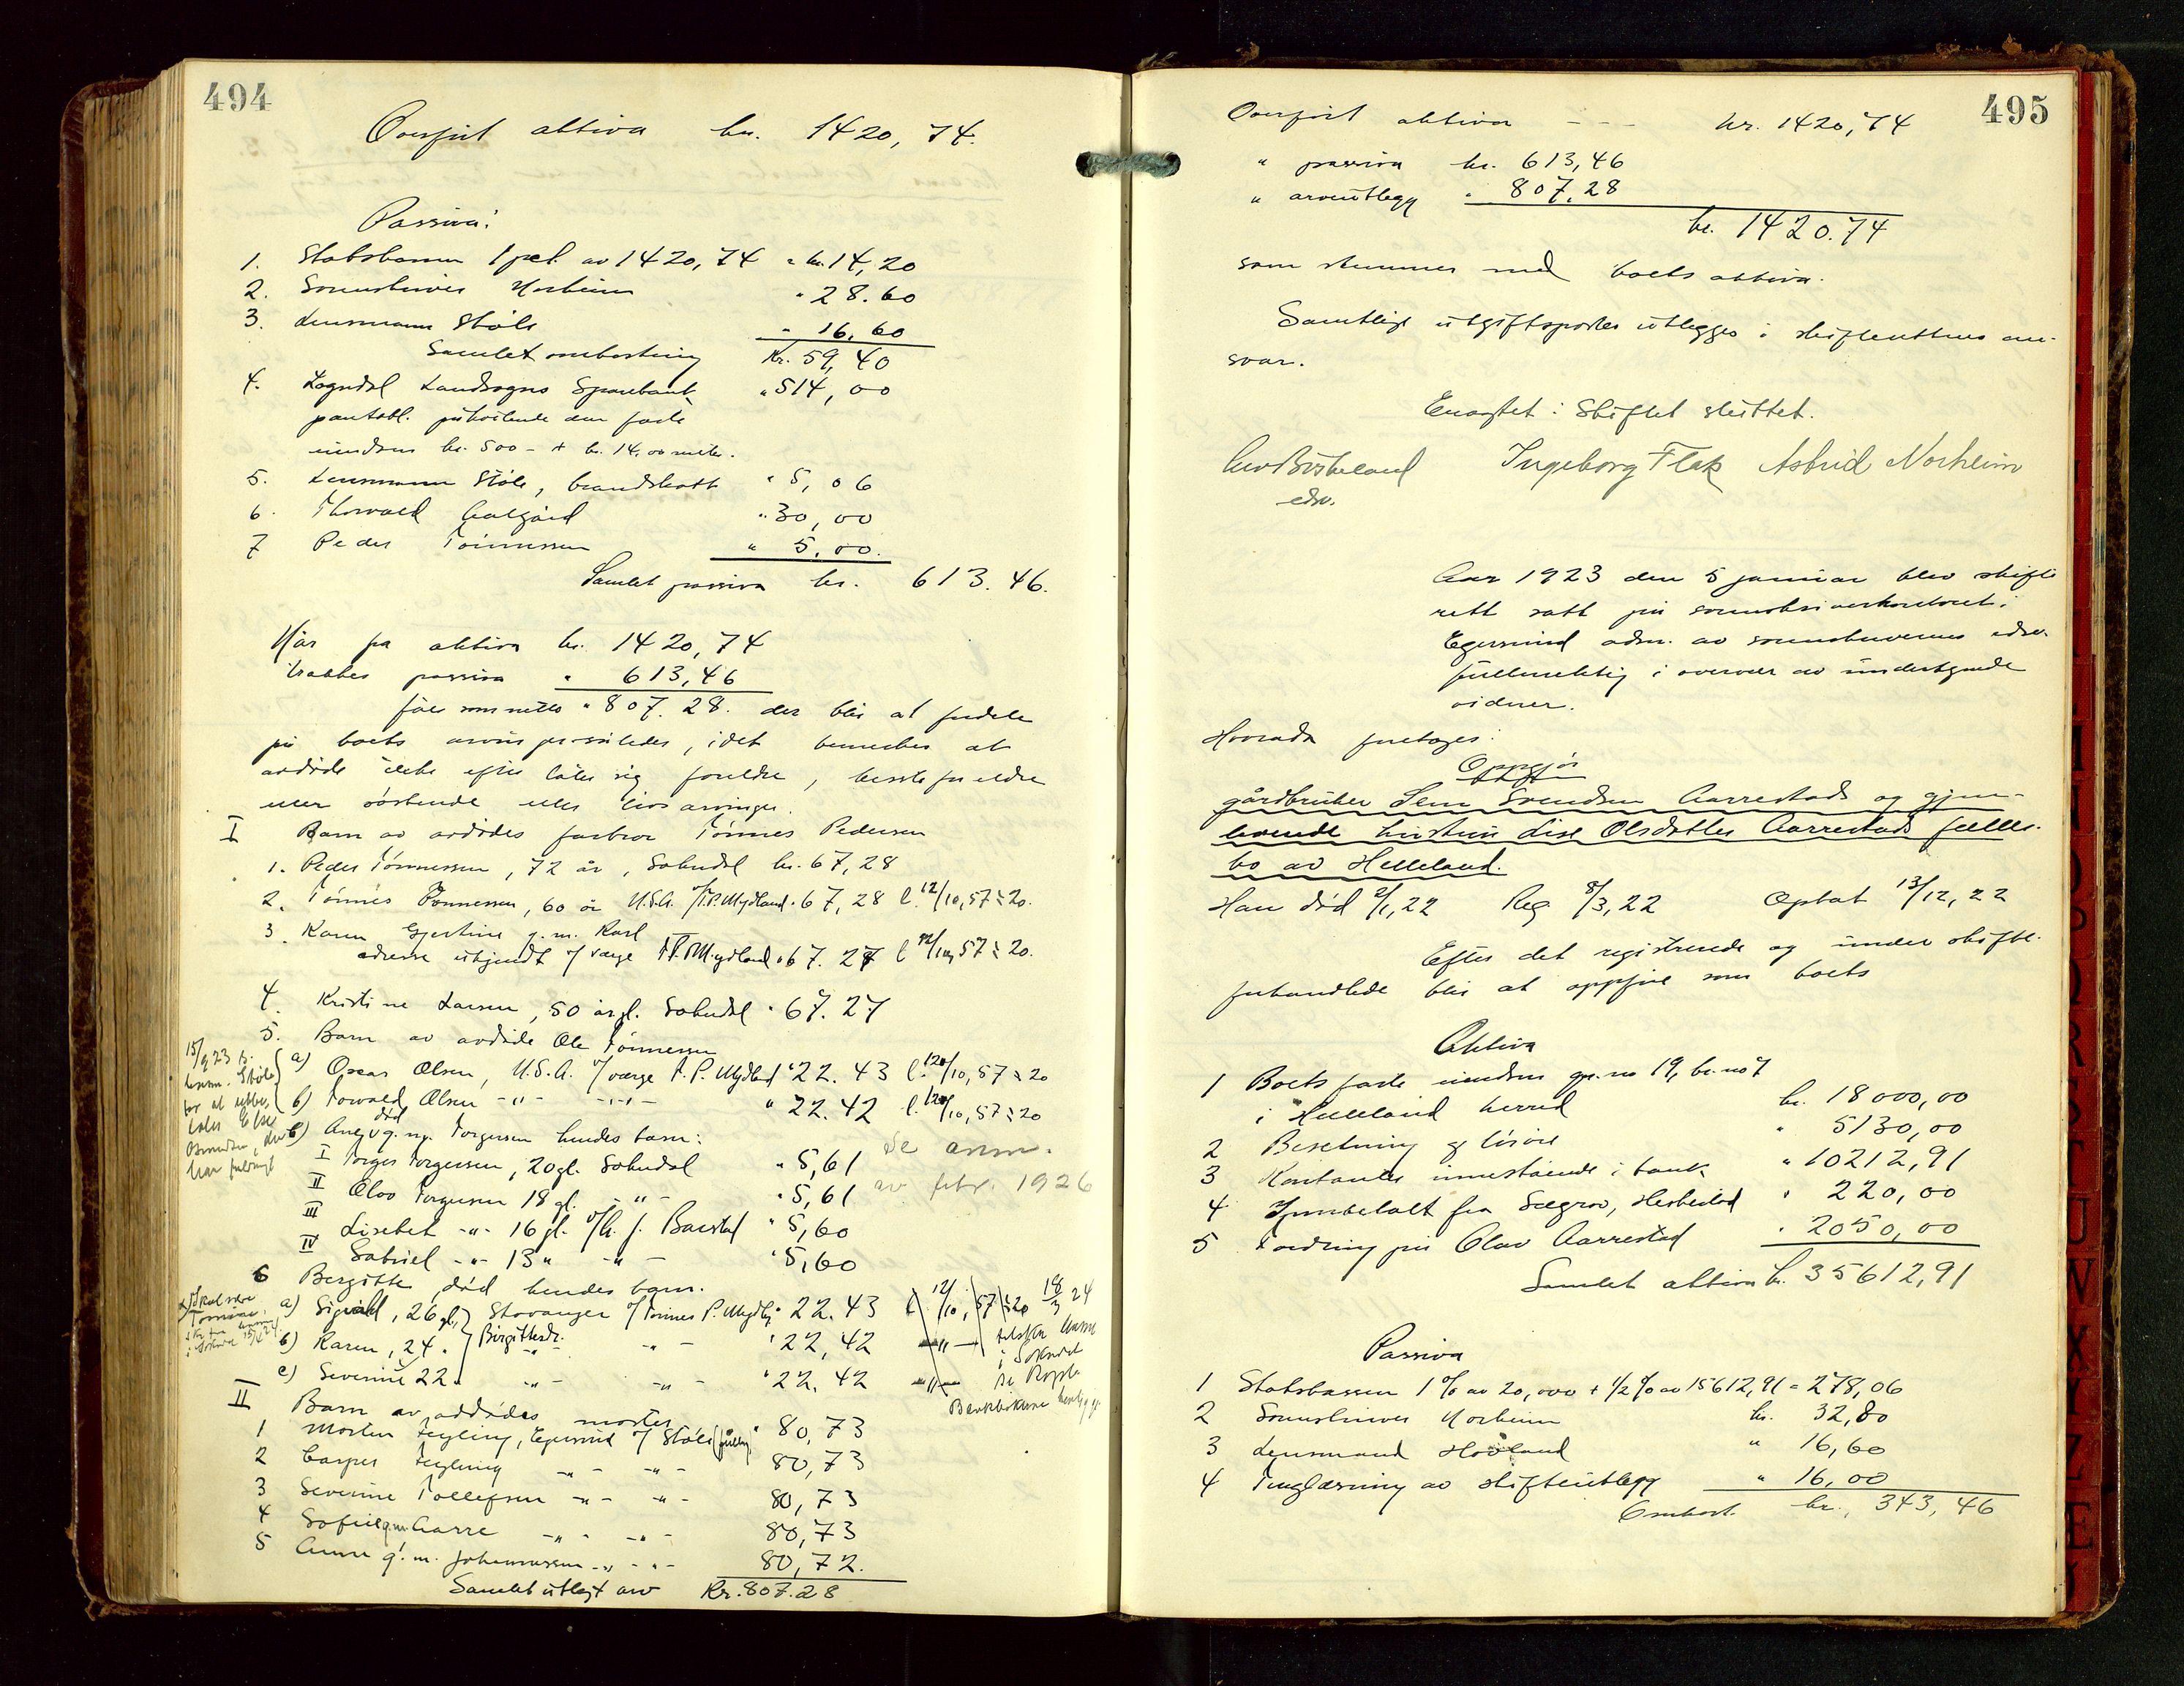 494
Overført aktiva kr. 1420,74.
Passiva:
1. Statskassen 1 pct. av 1420,74 " kr. 14,20
2. Sorenskriver Norheim " 28.60
3. Lensmann Støle " 16,60
Samlet omkostning Kr. 59,40
4. Sogndal Landsogns Sparebank " 514,00
pantobl. påhvilende den faste
eiendom kr. 500 - + kr. 14,00 renter.
5. Lensmann Støle, brandskatt " 5,06
6. Thorvald Aalgård " 30,00
7 Peder Tønnessen " 5,00.
Samlet passiva kr. 613.46.
Når fra aktiva kr. 1420,74
trækkes passiva " 613,46
fåes som netto " 807.28. der blir at fordele
på boets arvinger således, idet bemerkes at
avdøde ikke efterlater sig foreldre, besteforeldre
eller søskende eller livsarvinger.
I Barn av avdødes farbror Tønnes Pedersen
1. Peder Tønnessen, 72 år, Sokndal kr. 67,28
2. Tønnes Tønnessen, 60 år U.S.A. v/T.P. Mydland " 67,28 l. 12/10, 57 : 20.
3. Karen Gjertine g.m. Karl
adresse ukjendt v/ verge T.P. Mydland " 67.27 l 12/10, 57 : 20.
4. Kristine Larsen, 50 år gl. Sokndal " 67.27
5. Barn av avdøde Ole Tønnessen
15/9 23 B.
lensm. Støle
a) Oscar Olsen, U.S.A. v/verge T.P. Mydland " 22.43 l. 12/10, 57 : 20
b) Torvald Olsen - " - - " - " 22.42 l. 12/10, 57 : 20
død
g.m. Torgersen hendes barn: Se anm.
I Torger Torgersen, 20 gl. Sokndal " 5,61
av febr. 1926
II Olav Torgersen 18 gl. - " - " 5,61
III Lisebet - " - 16 gl. " 5,60
IV Gabriel - " - 13 " - " - " 5,60
6 Bergitte, død, hendes barn.
a) Sigvald, 26 gl. Stavanger v/Tønnes P. Mydl. " 22.43 l 12/10, 57 : 20 18/3 24
b) Karen, 24 " Birgittesdr. - " - " 22,42 - " -
i Sokndal
c) Severine 22. - " - - " - " 22.42 - " -
Bankbøkerne
II Barn av avdødes moster
1 Morten Fegling, Egersund v/ Støle " 80,73
2 Casper Fegling - " - - " - 80,73
3 Severine Tollefsen - " - - " - 80,73
4 Sofie g.m. Aarre - " - - " - 80,73
5 Anne g.m. Johannessen - " - - " - 80,72.
Samlet utlagt arv Kr. 807.28
495
Overført aktiva - - - kr. 1420,74
" passiva kr. 613,46
" arveutlegg " 807,28
kr. 1420.74
som stemmer med boets aktiva.
Samtlige utgiftsposter utlegges i skifterettens an-
svar.
Enastet: Skiftet sluttet.
Ingeborg Flak Astrid Norheim
edsv.
Aar 1923 den 5 januar blev skifte
rett satt på sorenskriverkontoret i
Egersund adm. av sorenskriverens edsv.
fullmektig i overvær av undertegnede
vidner.
Hvorda foretages:
Oppgjør
gårdbruker Sem Svendsen Aarrestads og gjen-
levende hustru Lise Olsdatter Aarrestads felles-
bo av Helleland.
Han død 2/1, 22 Reg. 8/3, 22 Optat 13/12, 22
Efter det registrerede og under skifte
forhandlede blir at oppføre som boets
Aktiva
1 Boets faste eiendom gr. no 19, br. no 7
i Helleland herred kr. 18000,00
2 Besetning og løsøre " 5130,00
3 Kontanter innestående i bank " 10212,91
4 Innbetalt fra Sægrov, Heskestad " 220,00
5 Fordring på Olav Aarrestad " 2050,00
Samlet aktiva kr. 35612,91
Passiva
1 Statskassen 1% av 20,000 + 1/2% av 15612,91 = 278,06
2 Sorenskriver Norheim kr. 32,80
3 Lensmand Hovland " 16,60
4 Tinglæsning av skifteutlegg " 16,00
Omkost. kr. 343,46